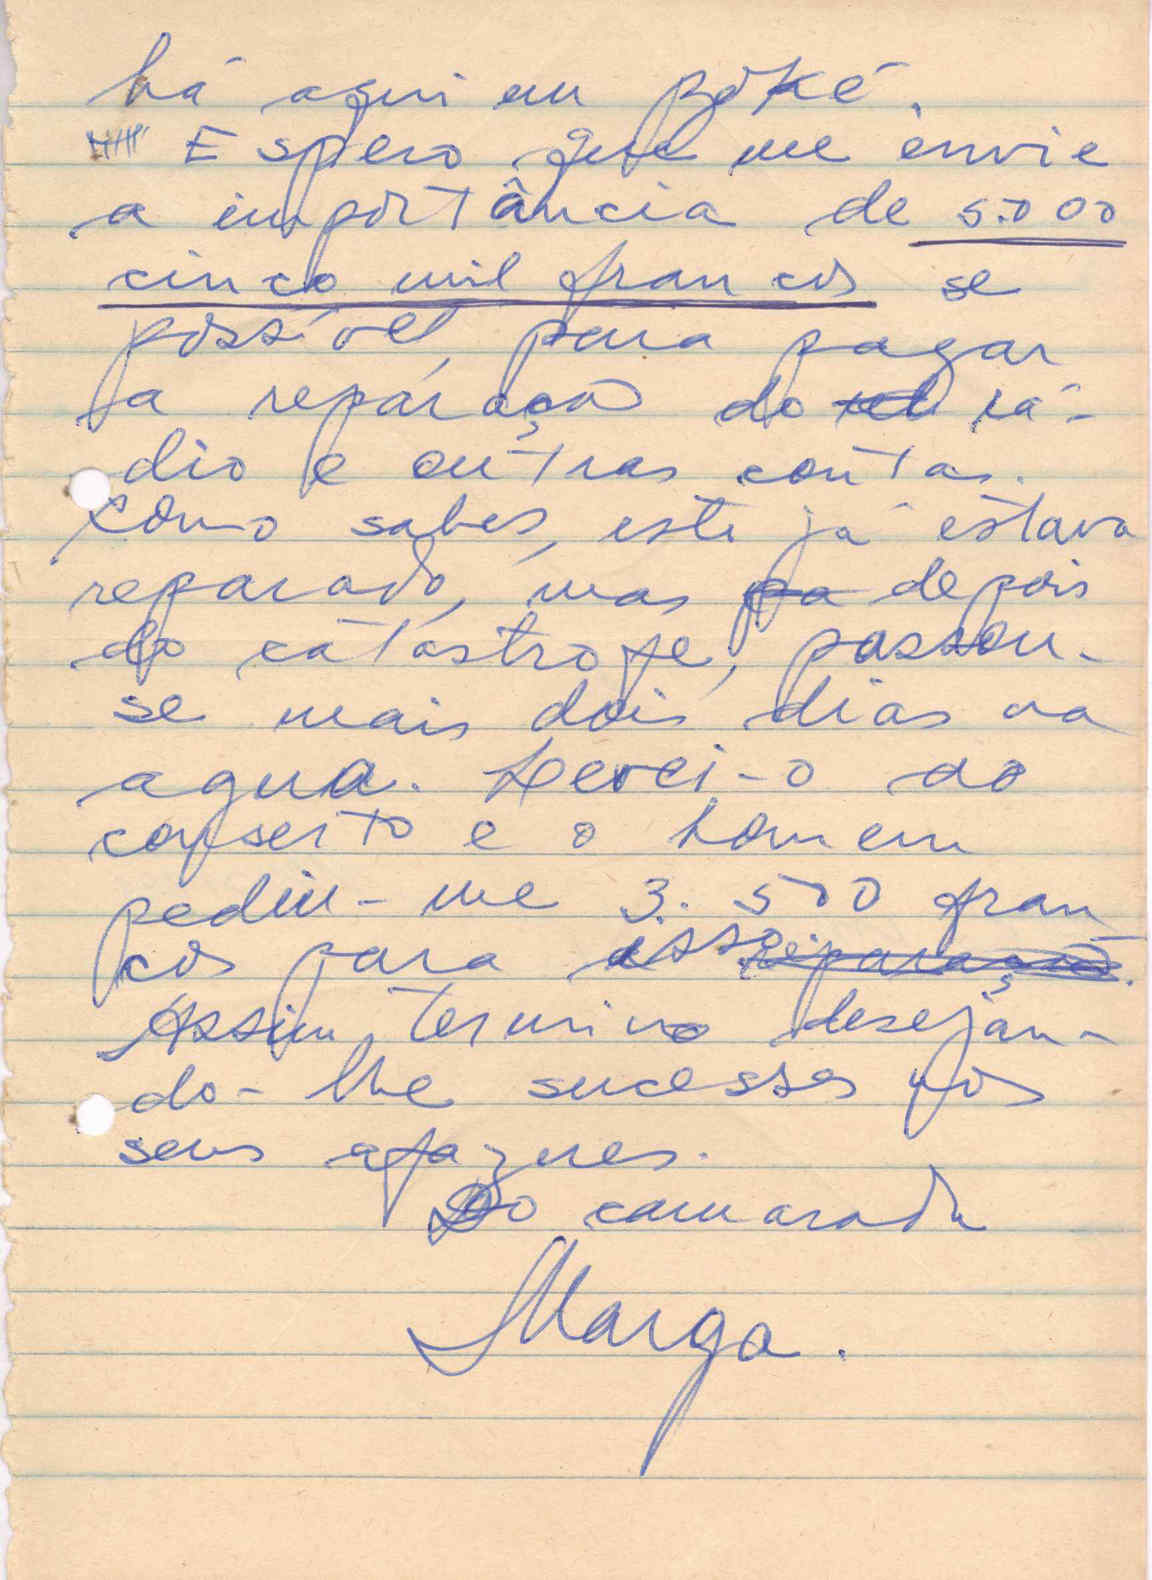 há aqui em Boké.
Espero que me envie
a importância de 5.000
cinco mil francos se
possível, para pagar
a reparação do rá-
dio e outras contas.
Como sabes, este já estava
reparado, mas depois
do catástrofe, passou-
se mais dois dias na
agua. Levei-o ao
conserto e o homem
pediu-me 3.500 fran
cos para isso
Assim termino desejan-
do-lhe sucessos nos
seus afazeres.
Do camarada
Marga.